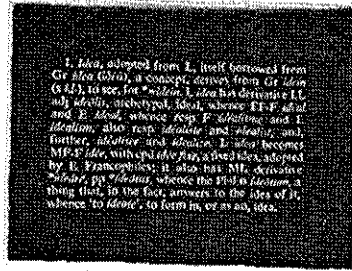 1. Idea, adopted from L, itself borrowed from
Gr idea (ἰδέα), a concept, derives from Gr idein
(s id-), to see, for *widein. L idea has derivative LL
adj ideālis, archetypal, ideal, whence EF-F idéal
and E ideal, whence resp F idéalisme and E
idealism, also resp idéaliste and idealist, and,
further, idéaliser and idealize. L idea becomes
MF-F idée, with cpd idée fixe, a fixed idea, adopted
by E Francophiles; it also has ML derivative
*ideāre, pp *ideātus, whence the Ph term ideātum, a
thing that, in the fact, answers to the idea of it,
whence 'to ideate', to form in, or as an, idea.